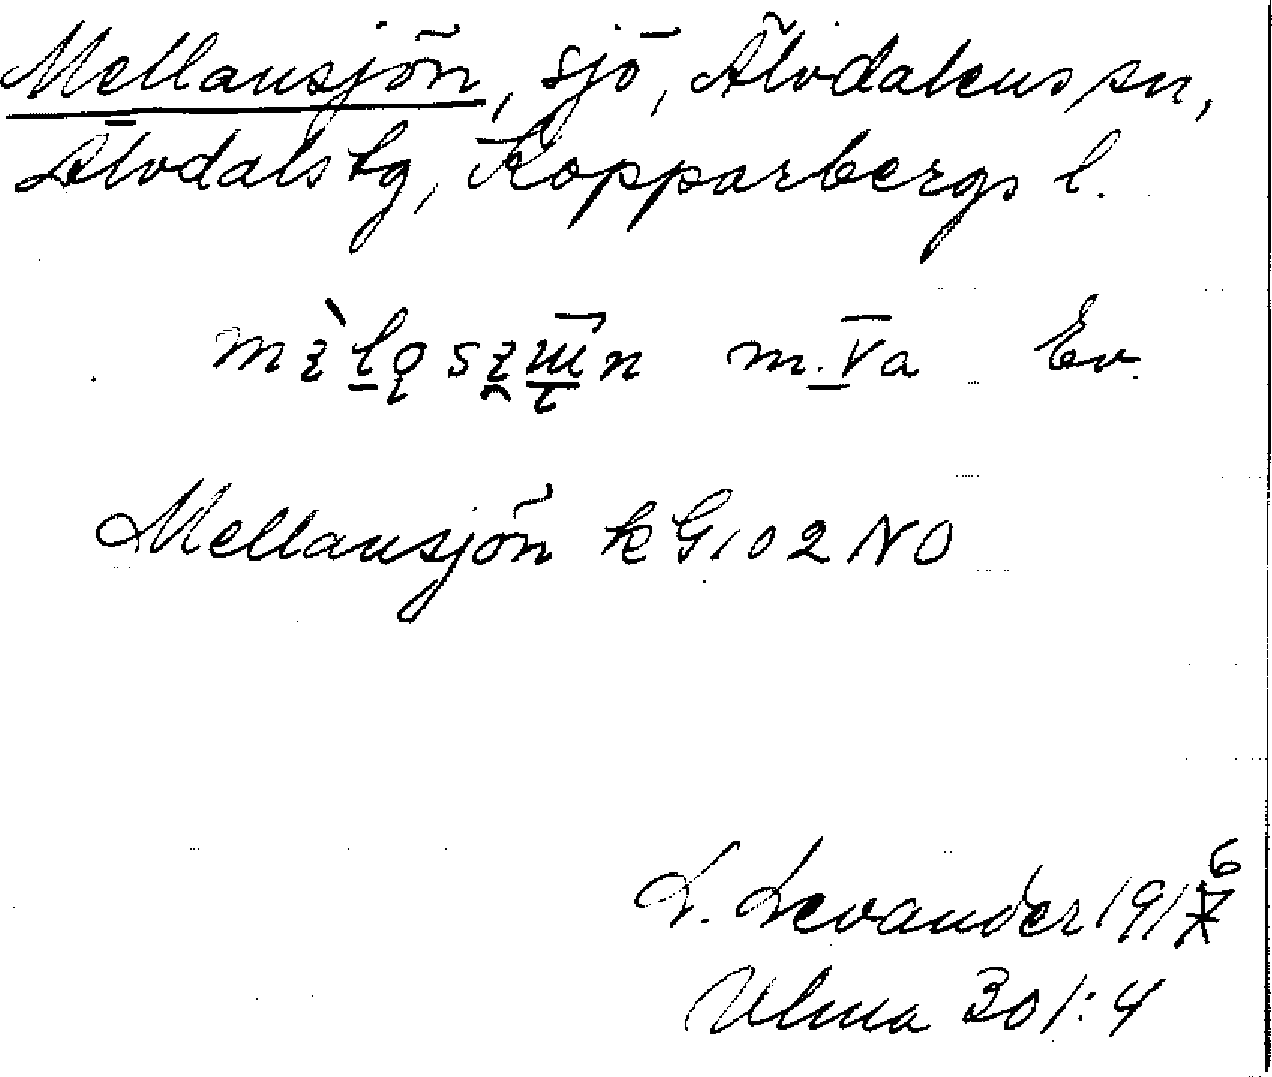 Mellansjön, sjö, Älvdalens sn,
Älvdals tg, Kopparbergs l.
m. Va Ev.
Mellansjön kG 102 NO
L. Levander 1916
Ulma 301:4